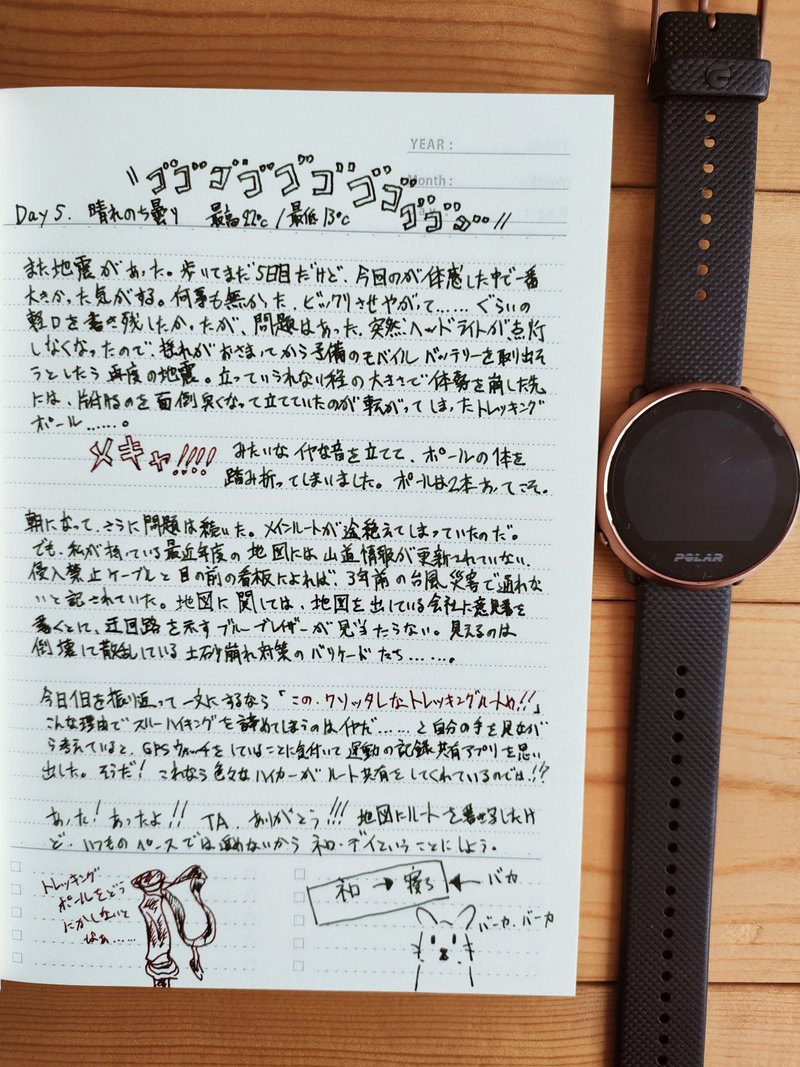 YEAR :
Month :
〃ゴゴゴゴゴゴゴゴゴゴ〃
Day 5. 晴れのち曇り 最高22℃ / 最低13℃
また地震があった。歩いてまだ5日目だけど、今回のが体感した中で一番
大きかった気がする。何事も無かった、ビックリさせやがって……ぐらいの
軽口を書き残したかったが、問題はあった。突然ヘッドライトが点灯
しなくなったので、揺れがおさまってから予備のモバイルバッテリーを取出そ
うとしたら再度の地震。立っていられない程の大きさで体勢を崩した先
には、片付けるのを面倒臭くなって立てていたのが転がってしまったトレッキング
ポール……。
メキャ!!!! みたいなイヤな音を立てて、ポールの体を
踏み折ってしまいました。ポールは2本あってこそ。
朝になって、さらに問題は続いた。メインルートが途絶えてしまっていたのだ。
でも、私が持っている最近年度の地図には山道情報が更新されていない。
侵入禁止ケーブルと目の前の看板によれば、3年前の台風災害で通れな
いと記されていた。地図に関しては、地図を出している会社に意見書を
書くとして、迂回路を示すブルーブレイザーが見当たらない。見えるのは
倒壊して散乱している土砂崩れ対策のバリケードたち……。
今日1日を振り返って一文にするなら「この、クソッタレなトレッキングルートめ!!」
こんな理由でスルーハイキングを諦めてしまうのはイヤだ……と自分の手を見なが
ら考えていると、GPSウォッチをしていることに気付いて運動の記録共有アプリを思い
出した。そうだ! これなら色々なハイカーがルート共有をしてくれているのでは!?
あった! あったよ!! TA、ありがとう!!! 地図にルートを書き写したけ
ど、いつものペースでは進めないから ネロ・デイということにしよう。
トレッキング
ポールをどう
にかしないと
なぁ……
ネロ → 寝ろ ← バカ
バーカ、バーカ
POLAR